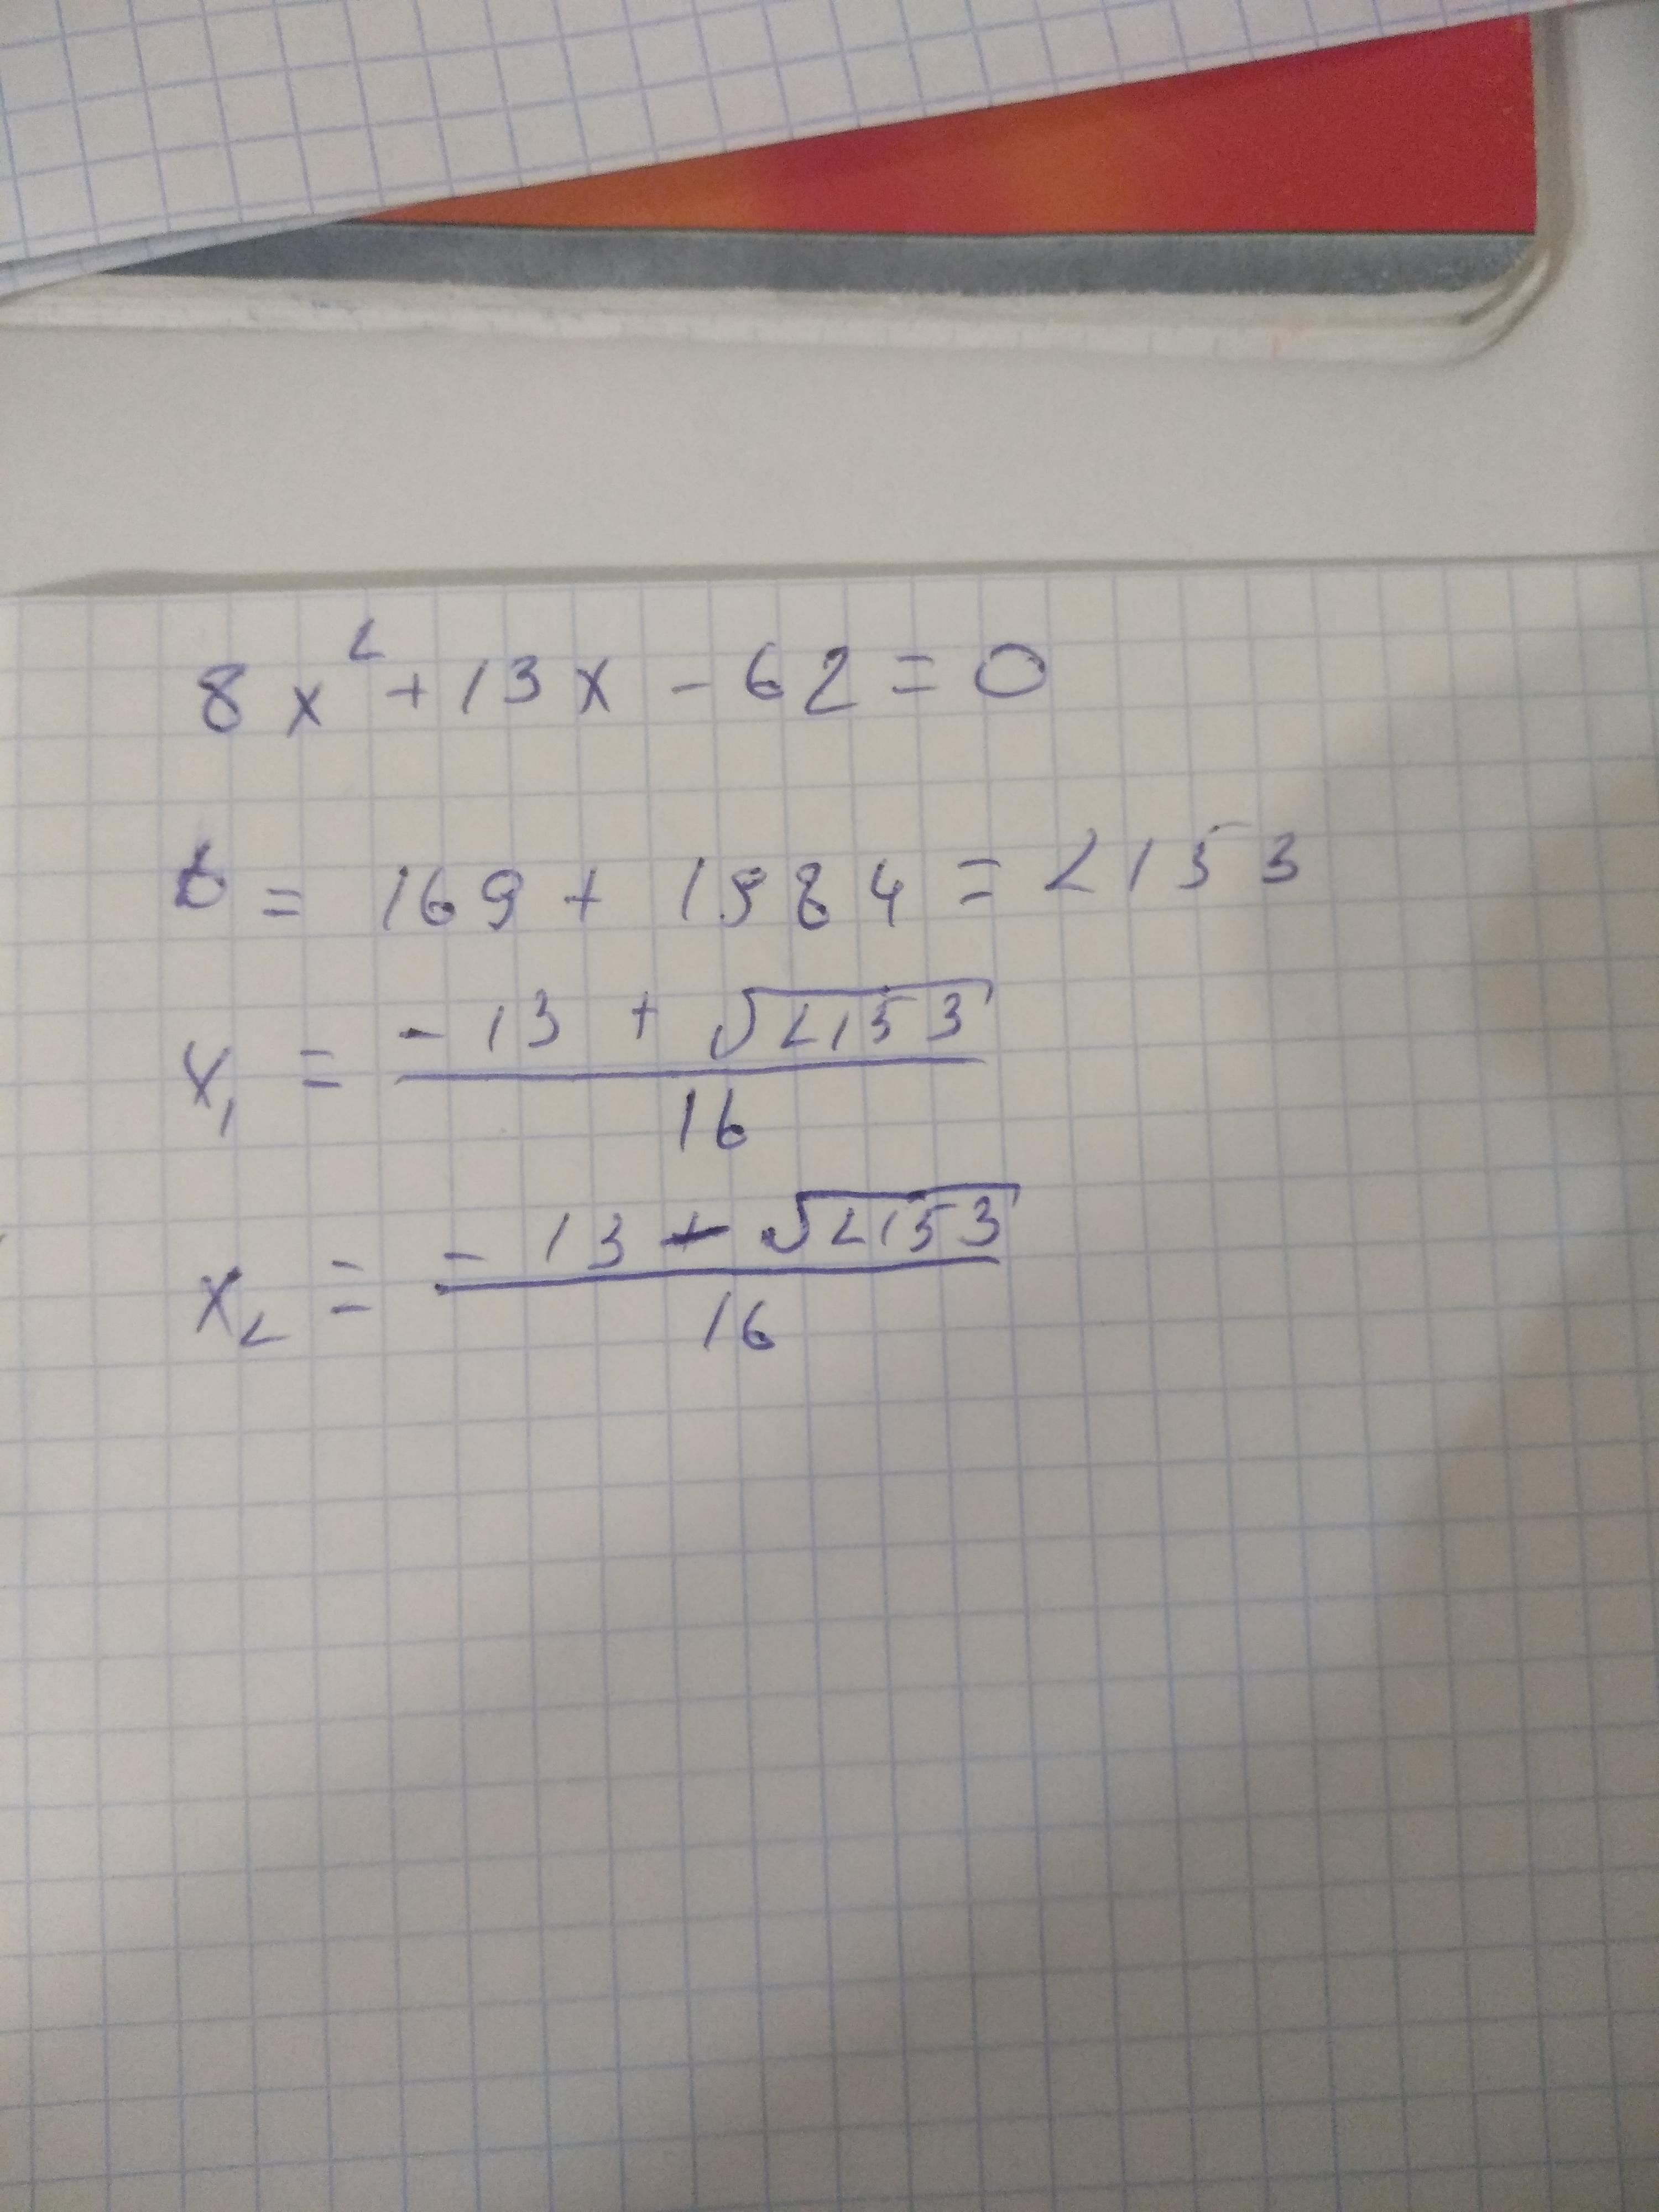 8x² + 13x - 62 = 0
D = 169 + 1984 = 2153
x₁ = (-13 + √2153) / 16
x₂ = (-13 - √2153) / 16